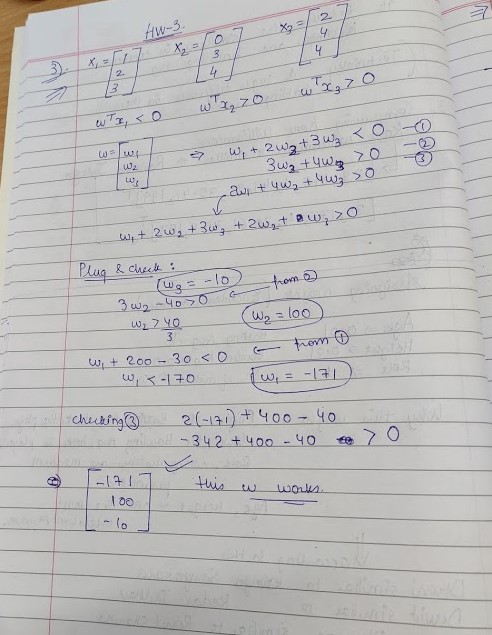 HW-3.
3). x₁ = [1 2 3] x₂ = [0 3 4] x₃ = [2 4 4]
wᵀx₁ < 0 wᵀx₂ > 0 wᵀx₃ > 0
w = [w₁ w₂ w₃] ⇒ w₁ + 2w₂ + 3w₃ < 0 —①
3w₂ + 4w₃ > 0 —②
2w₁ + 4w₂ + 4w₃ > 0 —③
w₁ + 2w₂ + 3w₃ + 2w₂ + w₃ > 0
Plug & check :
w₃ = -10
3w₂ - 40 > 0 ← from ②
w₂ > 40/3 w₂ = 100
w₁ + 200 - 30 < 0 ← from ①
w₁ < -170 w₁ = -171
checking ③ 2(-171) + 400 - 40
-342 + 400 - 40 > 0
[-171 100 -10] this w works.